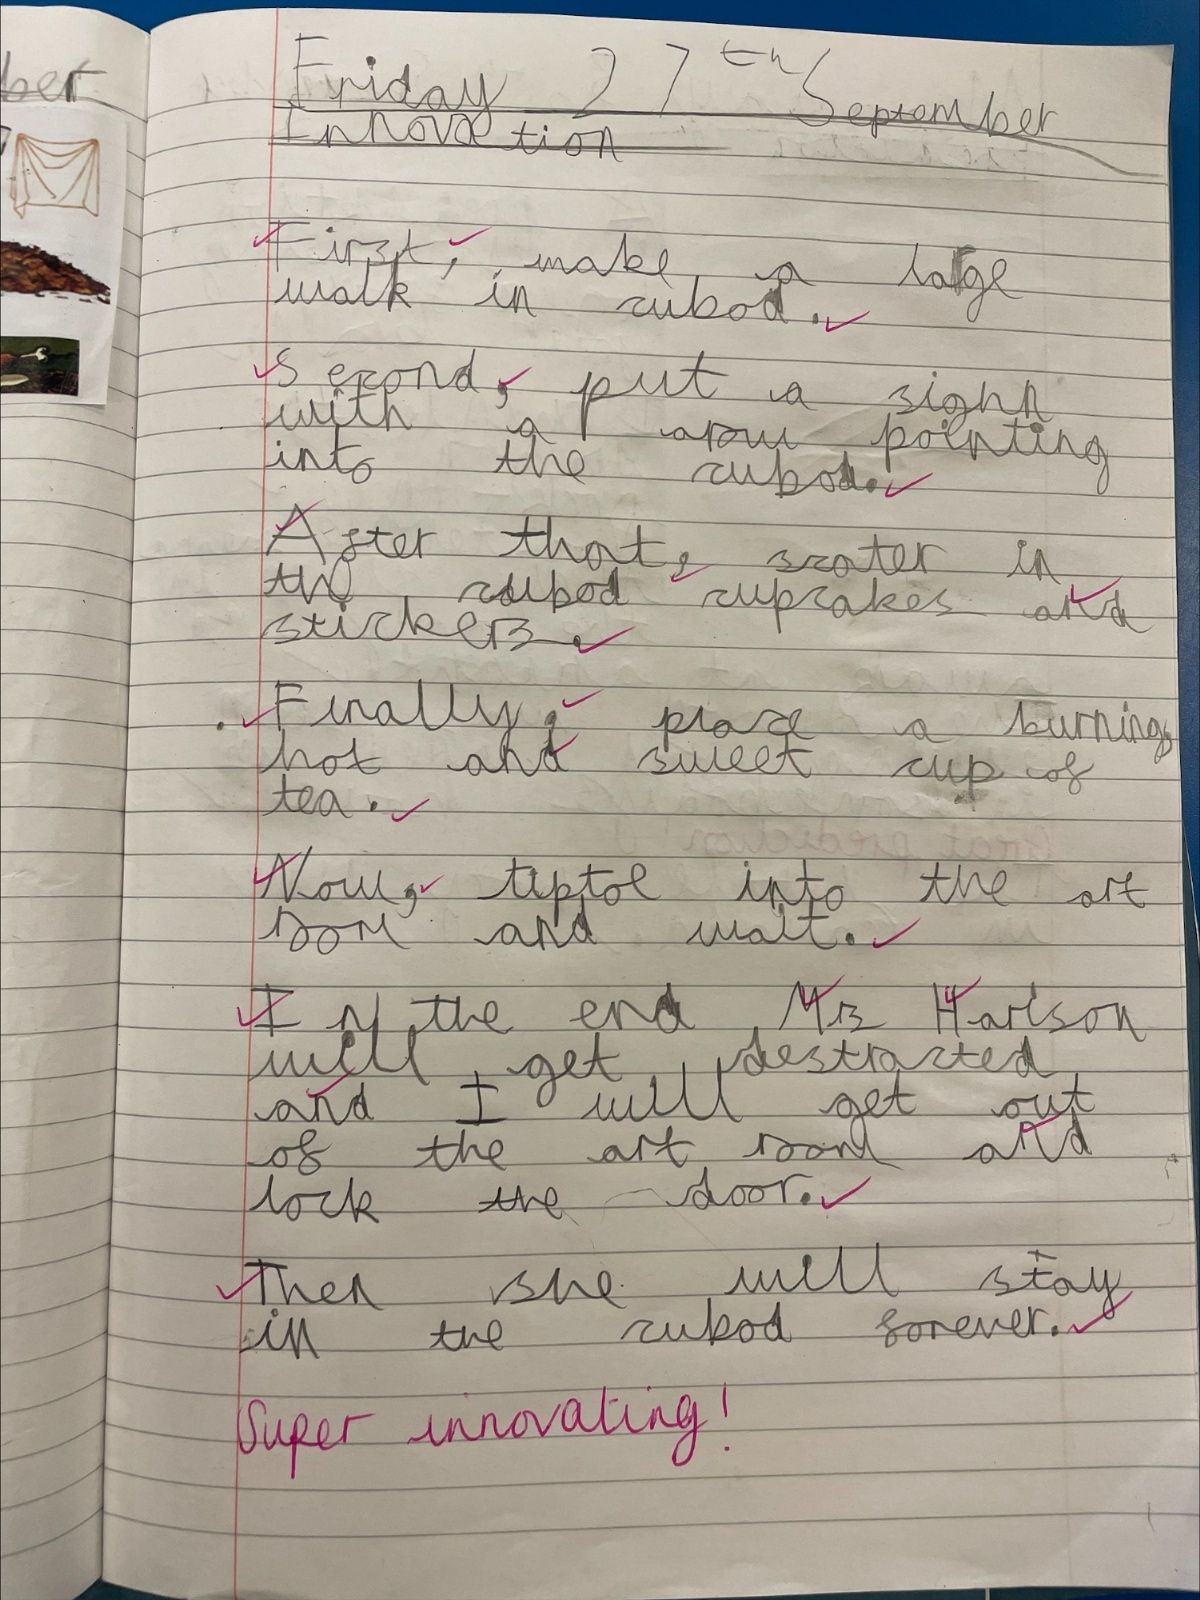 ber
Friday 27th September
Innovation
First, make a large
walk in cubod.
Second, put a sighn
with a arow pointing
into the cubod.
After that, scater in
the cubod cupcakes and
stickers.
Finally, place a burning
hot and sweet cup of
tea.
Now, tiptoe into the art
room and wait.
In the end Mrs Harison
will get destracted
and I will get out
of the art room and
lock the door.
Then she will stay
in the cubod forever.
Super innovating!